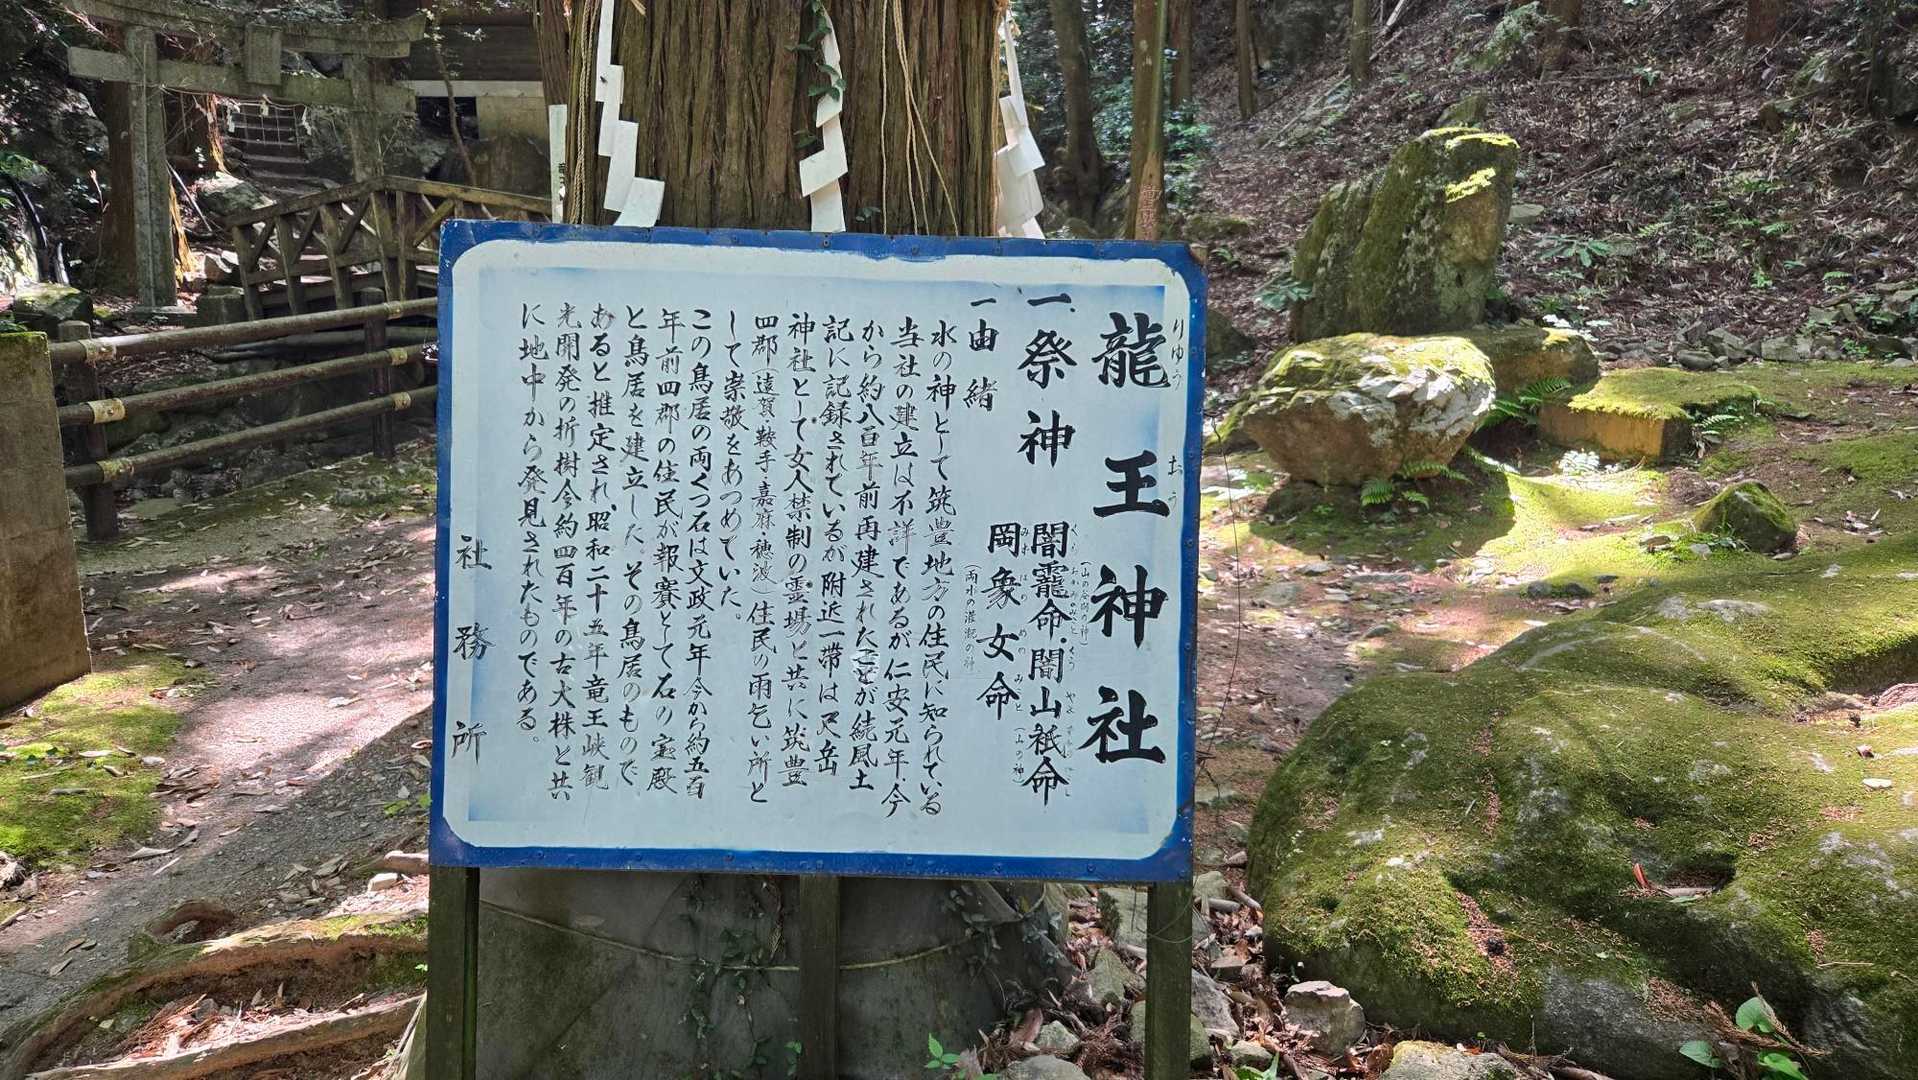 龍王神社
りゅうおう
一、祭神
闇龗命・闇山祇命
(山の谷間の神)
くらおかみのみこと くらやまずみのみこと
(山の神)
岡象女命
みずはのめのみこと
(雨水の灌漑の神)
一由緒
水の神として筑豊地方の住民に知られている
当社の建立は不詳であるが仁安元年・今
から約八百年前再建されたことが続風土
記に記録されているが附近一帯は尺岳
神社として女人禁制の霊場と共に筑豊
四郡(遠賀・鞍手・嘉麻・穂波)住民の雨乞い所と
して崇敬をあつめていた。
この鳥居の両くつ石は文政元年今から約五百
年前四郡の住民が報賽として石の宝殿
と鳥居を建立した。その鳥居のもので
あると推定され昭和二十五年竜王峡観
光開発の折樹令約四百年の古大株と共
に地中から発見されたものである。
社務所